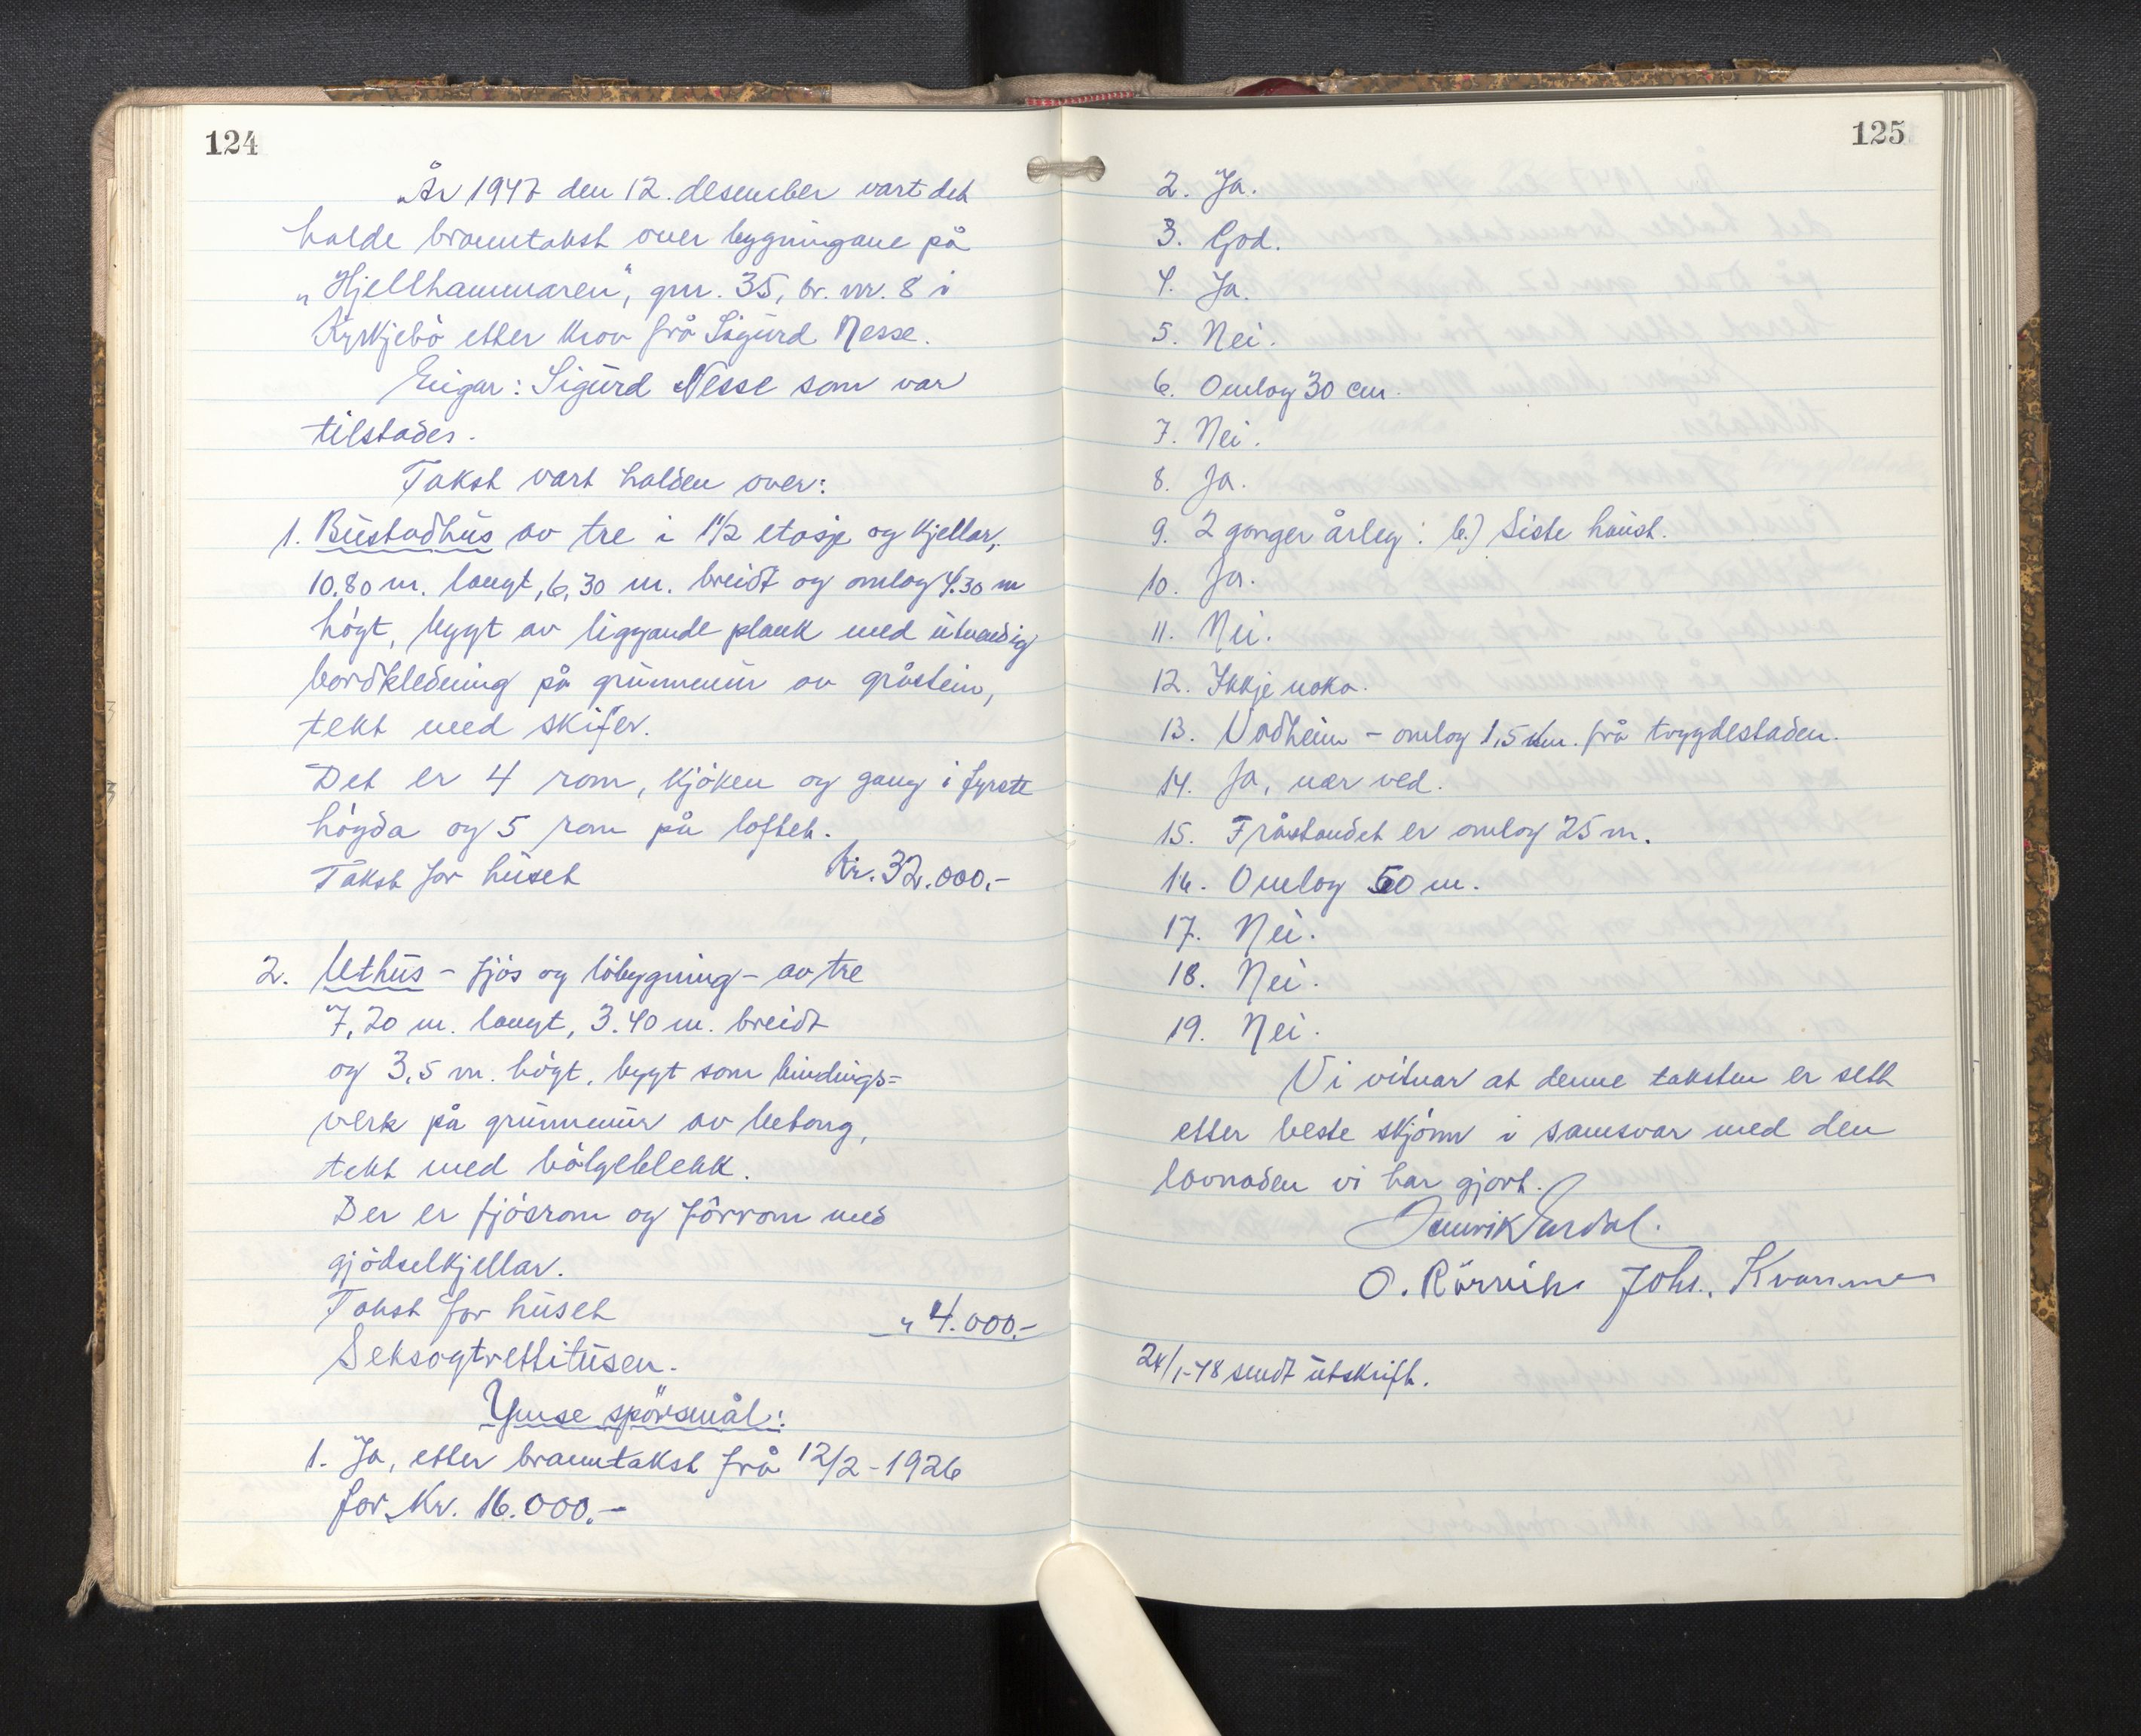 124
År 1947 den 12. desember vart det
halde branntakst over bygningane på
„Hjellhammaren", gnr. 35, br. nr. 8 i
Kyrkjebö etter krav frå Sigurd Nesse.
Eigar: Sigurd Nesse som var
tilstades.
Takst vart halden over:
1. Bustadhus av tre i 1½ etasje og kjellar,
10.80 m. langt, 6,30 m. breidt og omlag 4.30 m
högt, bygt av liggande plank med utvendig
bordkledning på grunnmur av gråstein,
tekt med skifer.
Det er 4 rom, kjöken og gang i fyrste
högda og 5 rom på loftet.
Takst for huset Kr. 32.000.-
2. Uthus - fjös og löbygning - av tre
7,20 m. langt, 3.40 m. breidt
og 3,5 m. högt, bygt som bindings=
verk på grunnmur av betong,
tekt med bölgeblekk.
Der er fjösrom og fôrrom med
gjödselkjellar.
Takst for huset „ 4.000.-
Seksogtrettitusen.
Ymse spörsmål:
1. Ja, etter branntakst frå 12/2 - 1926
for Kr. 16.000.-
125
2. Ja.
3. God.
4. Ja.
5. Nei.
6. Omlag 30 cm.
7. Nei.
8. Ja.
9. 2 gonger årleg: b.) Siste haust.
10. Ja.
11. Nei.
12. Ikkje noko.
13. Vadheim - omlag 1,5 km. frå trygdestaden.
14. Ja, nær ved.
15. Fråstandet er omlag 25 m.
16. Omlag 50 m.
17. Nei.
18. Nei.
19. Nei.
Vi vitnar at denne taksten er sett
etter beste skjönn i samsvar med den
lovnaden vi har gjort.
O. Rörvik Johs. Kvamme
24/1-48 sendt utskrift.